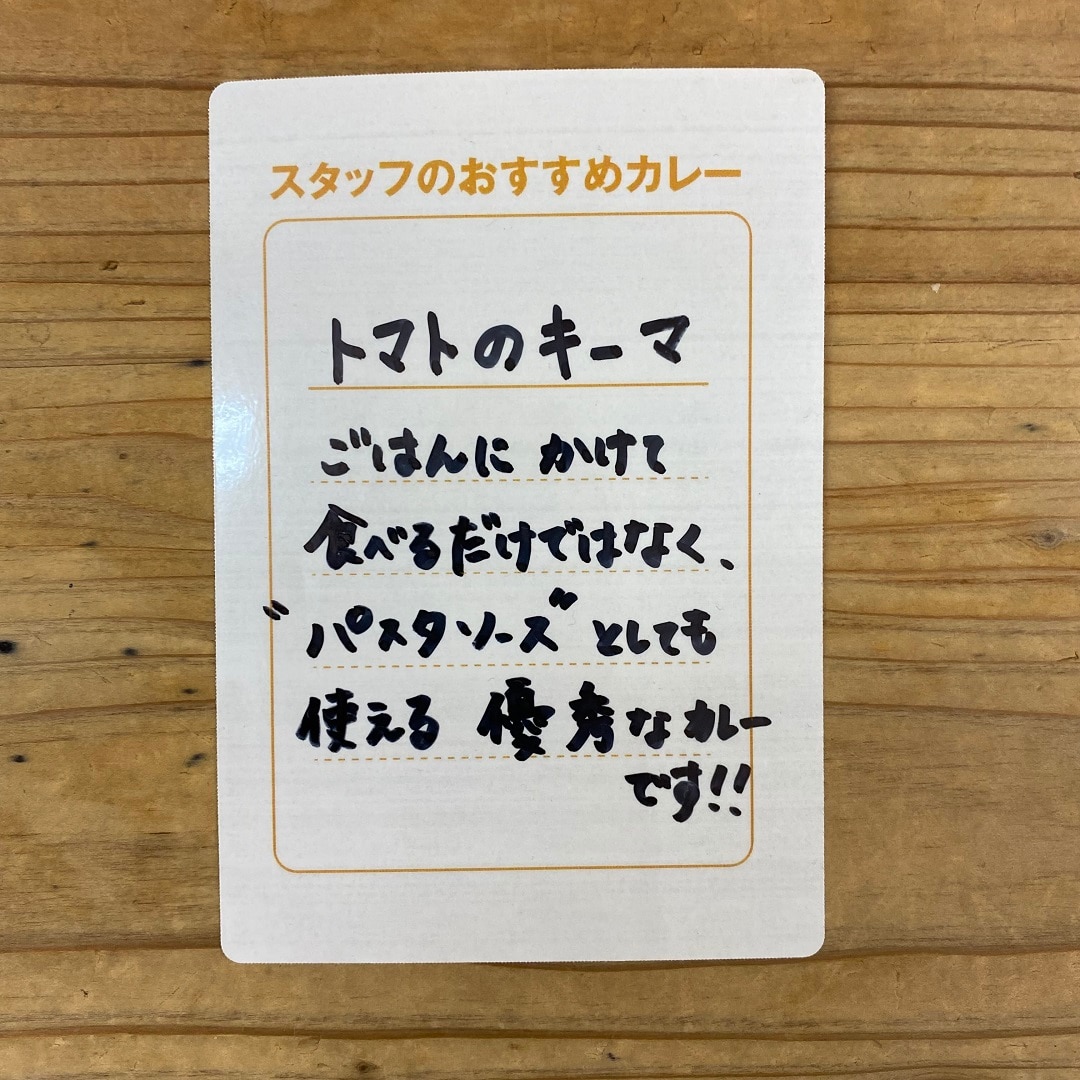 スタッフのおすすめカレー
トマトのキーマ
ごはんに かけて
食べるだけではなく、
〝パスタソース〞としても
使える 優秀なカレー
です!!